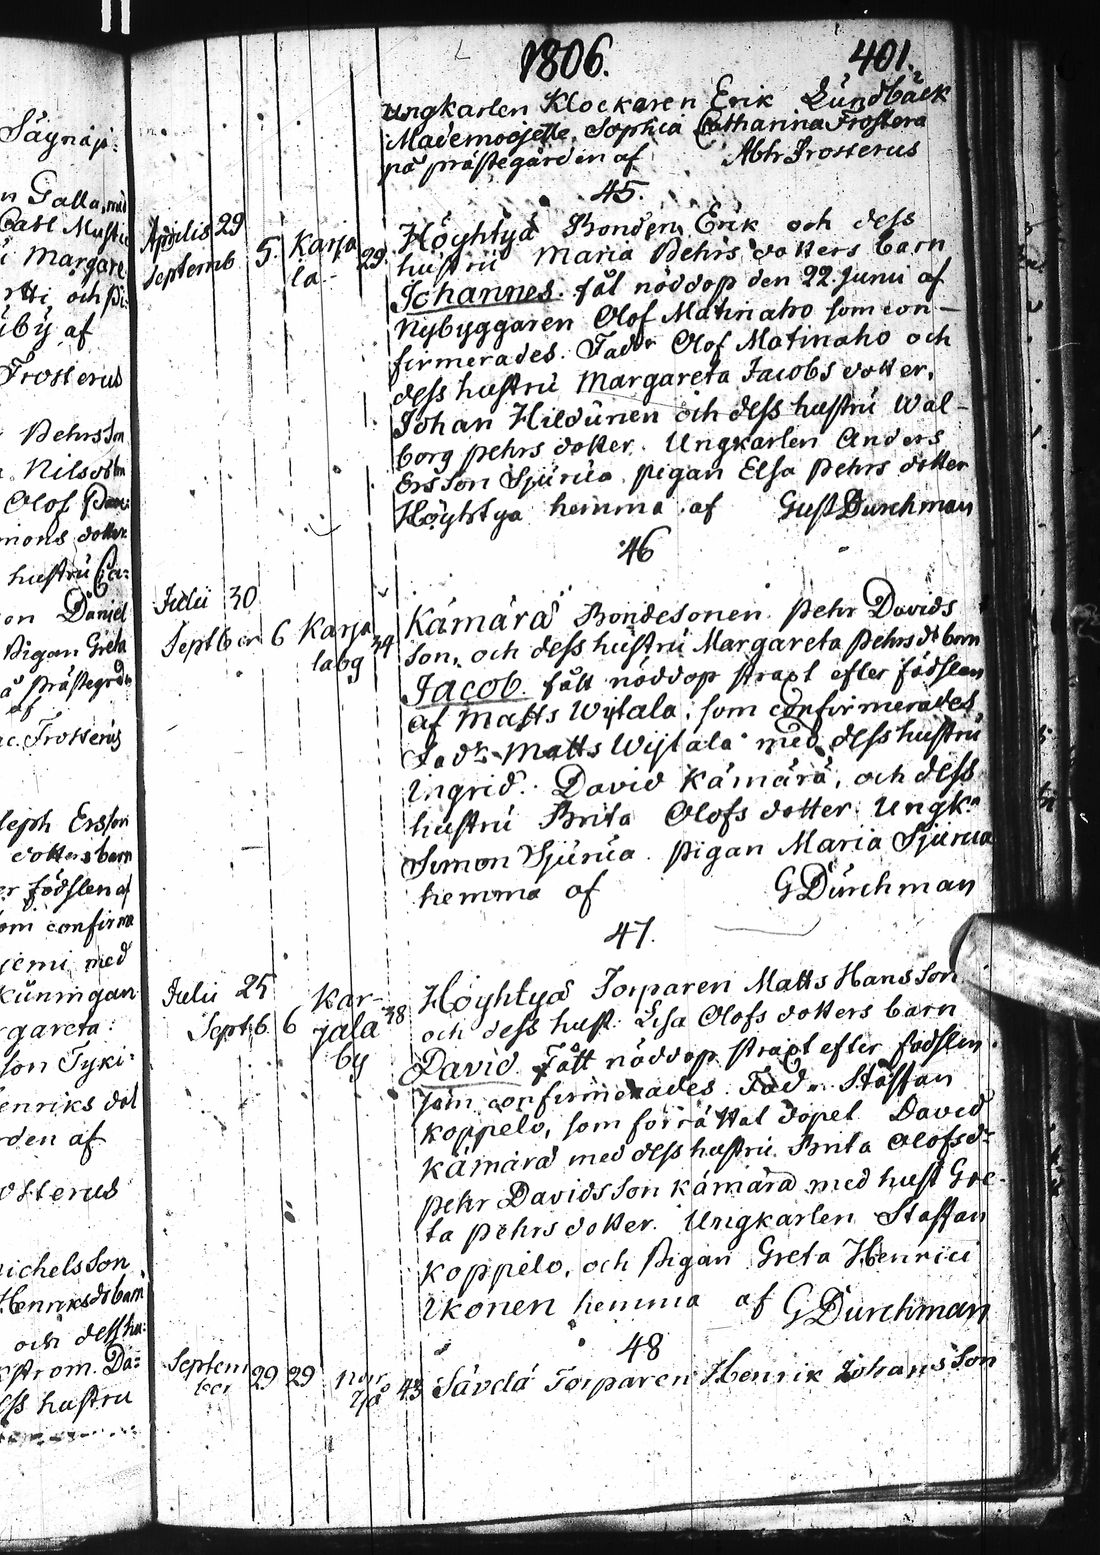 1806.
401.
Säynäjä:
n Galla, med
Carl Must
i Margare
rtti, och Pi:
iby af
Frosterus
Pehrsson
Nilsdotn
Olof
mons dotter
hustru Ca:
on Daniel
Pigan Greta
å Prästegrdn
af
ac. Frosterus
seph Ersson
dotters barn
er födslen af
om confirme
jemi med
Kuningan
rgareta
son Tyki:
enriks dot
rden af
osterus
ichelsson
Henriksdt barn
och dess hu:
kström. Da=
ess hustru
ungkarlen Klockaren Erik Lundbäck
Mademoiselle Sophia Catharina Frostera
på prästegården af Abh Frosterus
45.
Aprilis 29
Septemb 5. Karja 29
la-
Höyhtyä Bonden Erik och dess
hustru Maria Pehrs dotters barn
Johannes. fåt nöddop den 22. Junii af
Nybyggaren Olof Matinaho som con-
firmerades. Fadr Olof Matinaho och
dess hustru Margareta Jacobs dotter.
Johan Hildunen och dess hustru Wal-
borg pehrs dotter. Ungkarlen Anders
Ersson Sjurua. pigan Elsa pehrs dotter
Höyhtya hemma af Gust Durchman
46
Julii 30
Septber 6 Karja 34
laby
Kämärä Bondesonen pehr Davids
son. och dess hustru Margareta Pehrs dt barn
Jacob. fått nöddop straxt efter födslen
af Matts Wijtala. som confirmerades
Fadr Matts Wijtala med dess hustru
Ingrid. David Kämärä, och dess
hustru Brita Olofs dotter. Ungkn
Simon Sjurua. pigan Maria Sjurua
hemma af G Durchman
47.
Julii 25
Sept 6 6 Kar- 38
jala
by
Höyhtyä Torparen Matts Hansson
och dess hust. Lisa Olofs dotters barn
David fått nöddop straxt efter födslen.
som confirmerades. Fadr. Staffan
koppelo, som förrättat dopet David
Kämärä med dess hustru Brita Olofsdr
pehr Davidsson Kämärä med hust Gre-
ta pehrs dotter. Ungkarlen Staffan
koppelo, och Pigan Greta Henrici
Ikonen hemma af G Durchman
48
Septem
ber 29 29 43
Sävelä Torparen Henrik Johansson